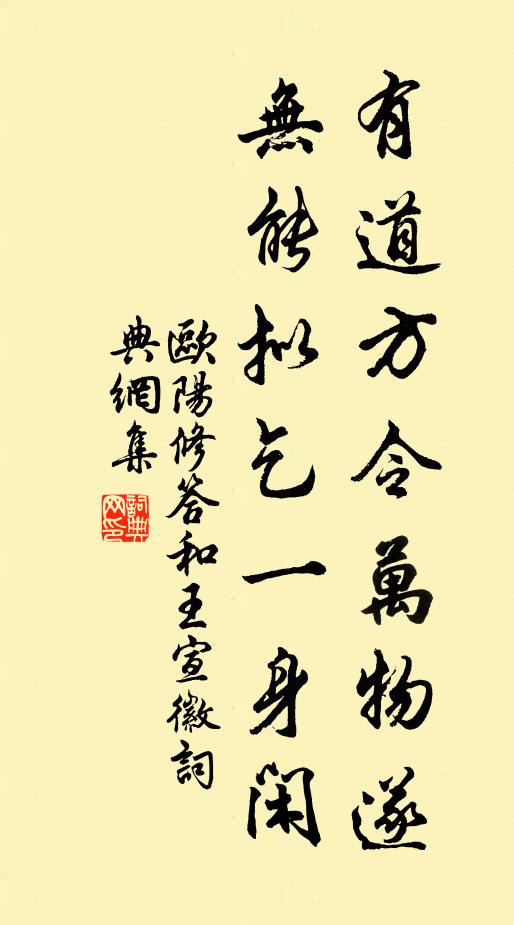 有道方令萬物遂
無能拟乞一身閑
歐陽修答和王宣徽詞
典網集
詞典網印